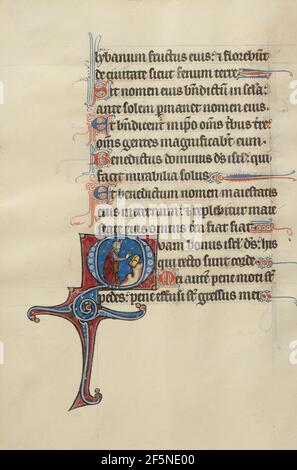 lybanum fructus eius: & florebūt
de ciuitate sicut fenum terre.
Sit nomen eius bn̄dictum in sc̄la:
ante solem pmanet nomen eius.
Et bn̄dicent in ipo om̄s tribus tr̄e:
om̄s gentes magnificabt̄ eum.
Benedictus dominus ds̄ isrl̄. qui
facit mirabilia solus
Et benedictum nomen maiestatis
eius in eternum: & replebitur maie
state eius omnis tr̄a fiat fiat.
Quam bonus isrl̄. ds̄: hiis
qui recto sunt corde.
Mei aut̄ pene moti st̄
pedes: pene effusi st̄ gressus mei.
alamy
Image ID: 2F5NE00
www.alamy.com